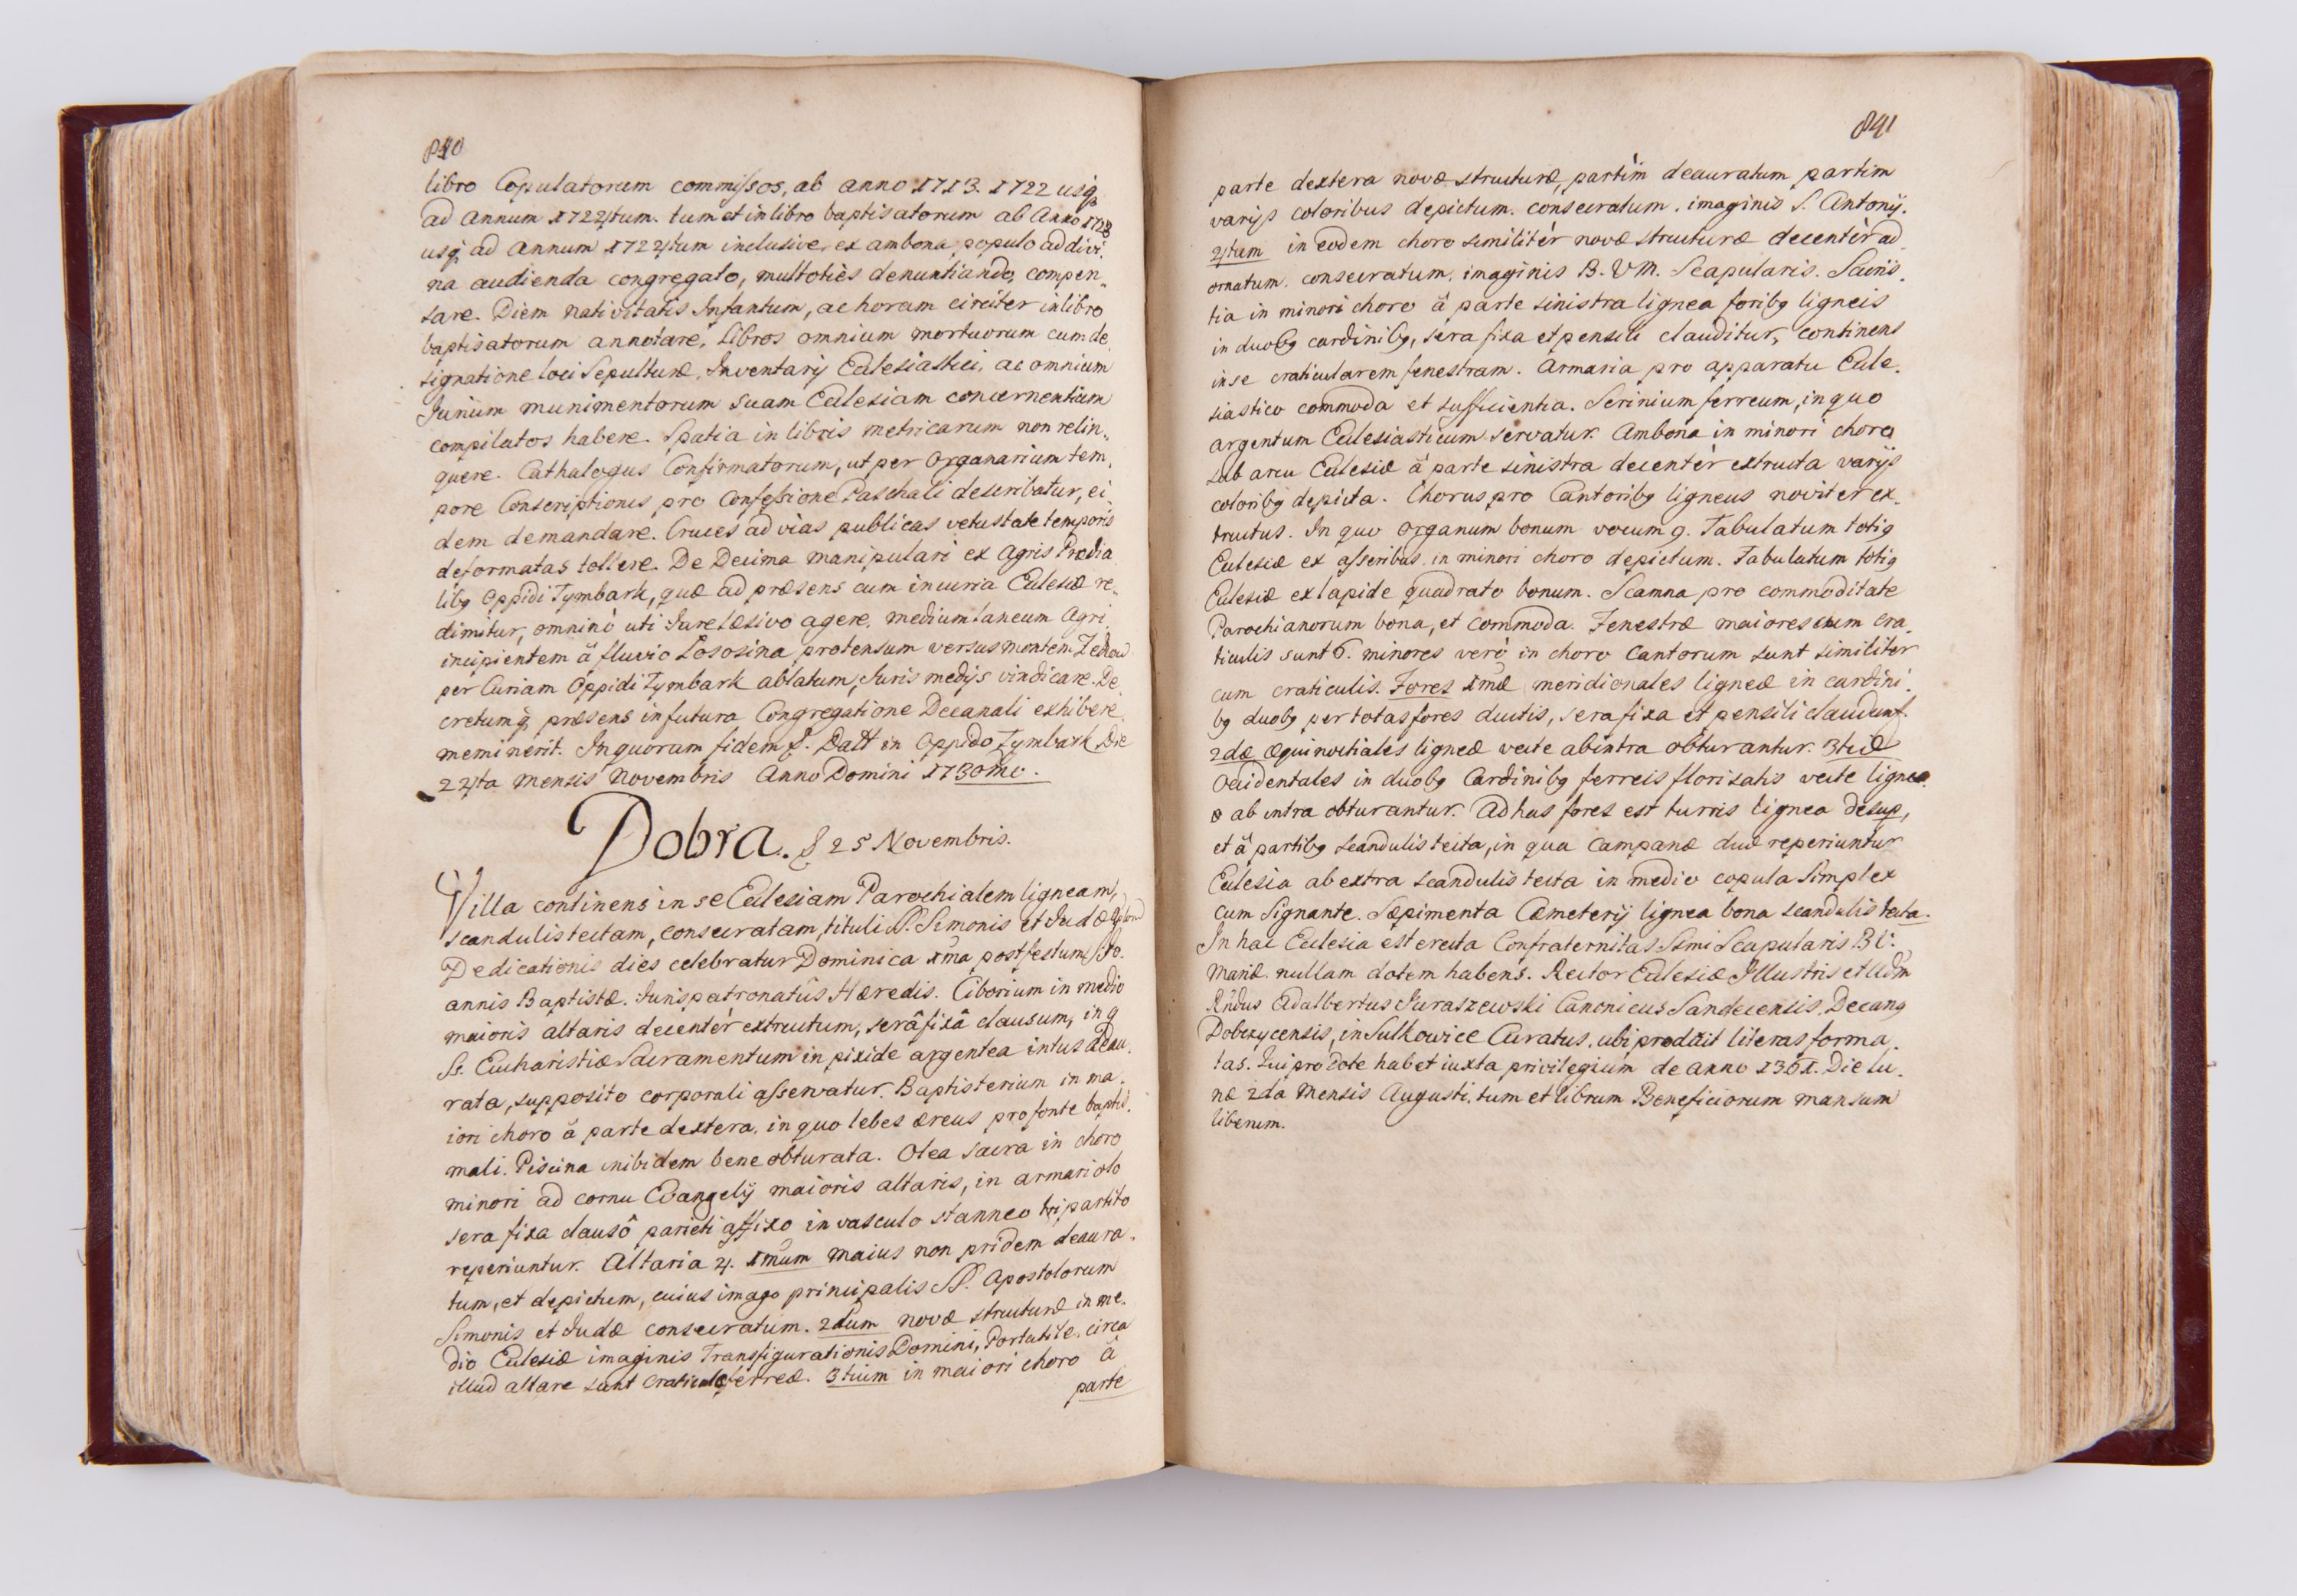 840
libro Copulatorum commissos, ab anno 1713. 1722 usq
ad Annum 1724tum. tum et in libro baptisatorum ab Anno 1718
usq ad Annum 1724tum inclusive, ex ambona, populo ad divi„
na audienda congregato, multoties denuntiando, compen„
sare. Diem nativitatis Infantum, ac horam circiter in libro
baptisatorum annotare, Libros omnium mortuorum cum de„
signatione loci Sepulturæ, Inventarij Ecclesiastici, ac omnium
Iurium munimentorum suam Ecclesiam concernentium
compilatos habere. Spatia in libris metricarum non relin„
quere. Cathalogus Confirmatorum, ut per Organarium tem„
pore Conscriptionis pro Confessione Paschali describatur, ei„
dem demandare. Cruces ad vias publicas vetustate temporis
deformatas tollere. De Decima manipulari ex Agris Prædia„
libq Oppidi Tymbark, quæ ad præsens cum incuria Ecclesiæ re„
dimitur, omninò uti Iure læsivo agere, medium laneum Agri
incipientem à fluvio Lososina protensum versus montem
per Curiam Oppidi Tymbark ablatum, Iuris medijs vindicare. De„
cretumq præsens in futura Congregatione Decanali exhibere
meminerit. In quorum fidem &. Datt in Oppido Tymbark Die
24ta Mensis Novembris Anno Domini 1730mo.
Dobra. & 25 Novembris.
Villa continens in se Ecclesiam Parochialem ligneam,
scandulis tectam, consecratam, tituli SS. Simonis et Iudæ
Dedicationis dies celebratur Dominica 1ma post festum S. Io„
annis Baptistæ. Iuris patronatûs Hæredis. Ciborium in medio
maioris altaris decentèr extructum, serâ fixâ clausum, in q
SS. Eucharistiæ Sacramentum in pixide argentea intus deau„
rata, supposito corporali asservatur. Baptisterium in ma„
iori choro à parte dextera, in quo lebes æreus pro fonte baptis„
mali. Piscina inibidem bene obturata. Olea sacra in choro
minori ad cornu Evangelij maioris altaris, in armariolo
sera fixa clausô parieti affixo in vasculo stanneo tripartito
reperiuntur. Altaria 4. 1mum maius non pridem deaura„
tum, et depictum, cuius imago principalis SS. Apostolorum
Simonis et Iudæ consecratum. 2dum novæ structuræ in me„
dio Ecclesiæ imaginis Transfigurationis Domini, Portatile, circa
illud altare sunt craticulæ ferreæ. 3tium in maiori choro à
parte
841
parte dextera novæ structuræ, partim deauratum partim
varijs coloribus depictum, consecratum, imaginis S. Antonij.
4tum in eodem choro similitèr novæ structuræ decentèr ad„
ornatum, consecratum, imaginis B. V M. Scapularis. Sacris„
tia in minori choro à parte sinistra lignea foribq ligneis
in duobq cardinibq, sera fixa et pensili clauditur, continens
in se craticularem fenestram. Armaria pro apparatu Eccle„
siastico commoda et sufficientia. Scrinium ferreum, in quo
argentum Ecclesiasticum servatur. Ambona in minori choro
sub arcu Ecclesiæ à parte sinistra decentèr extructa varijs
coloribq depicta. Chorus pro Cantoribq ligneus noviter ex„
tructus. In quo Organum bonum vocum 9. Tabulatum totiq
Ecclesiæ ex asseribus in minori choro depictum. Tabulatum totiq
Ecclesiæ ex lapide quadrato bonum. Scamna pro commoditate
Parochianorum bona, et commoda. Fenestræ maiores cum cra„
ticulis sunt 6. minores verò in choro Cantorum sunt similiter
cum craticulis. Fores 1mæ meridionales ligneæ in cardini„
bq duobq per totas fores ductis, sera fixa et pensili claudunt.
2dæ æquinoctiales ligneæ vecte ab intra obturantur. 3tiæ
Occidentales in duobq Cardinibq ferreis florisatis vecte ligneo
ab intra obturantur. Ad has fores est turris lignea desup,
et à partibq scandulis tecta, in qua Campanæ duæ reperiuntur
Ecclesia ab extra scandulis tecta in medio copula simplex
cum Signante. Sæpimenta Cæmeterij lignea bona scandulis tecta.
In hac Ecclesia est erecta Confraternitas Ssmi Scapularis B V.
Mariæ. nullam dotem habens. Rector Ecclesiæ Illustris et Adm
Rndus Adalbertus Iuraszewski Canonicus Sandecensis, Decanq
Dobczycensis, in Sulkowice Curatus, ubi produxit literas forma„
tas. Qui pro dote habet iuxta privilegium de anno 1361. Die Lu„
næ 2da Mensis Augusti, tum et librum Beneficiorum mansum
liberum.